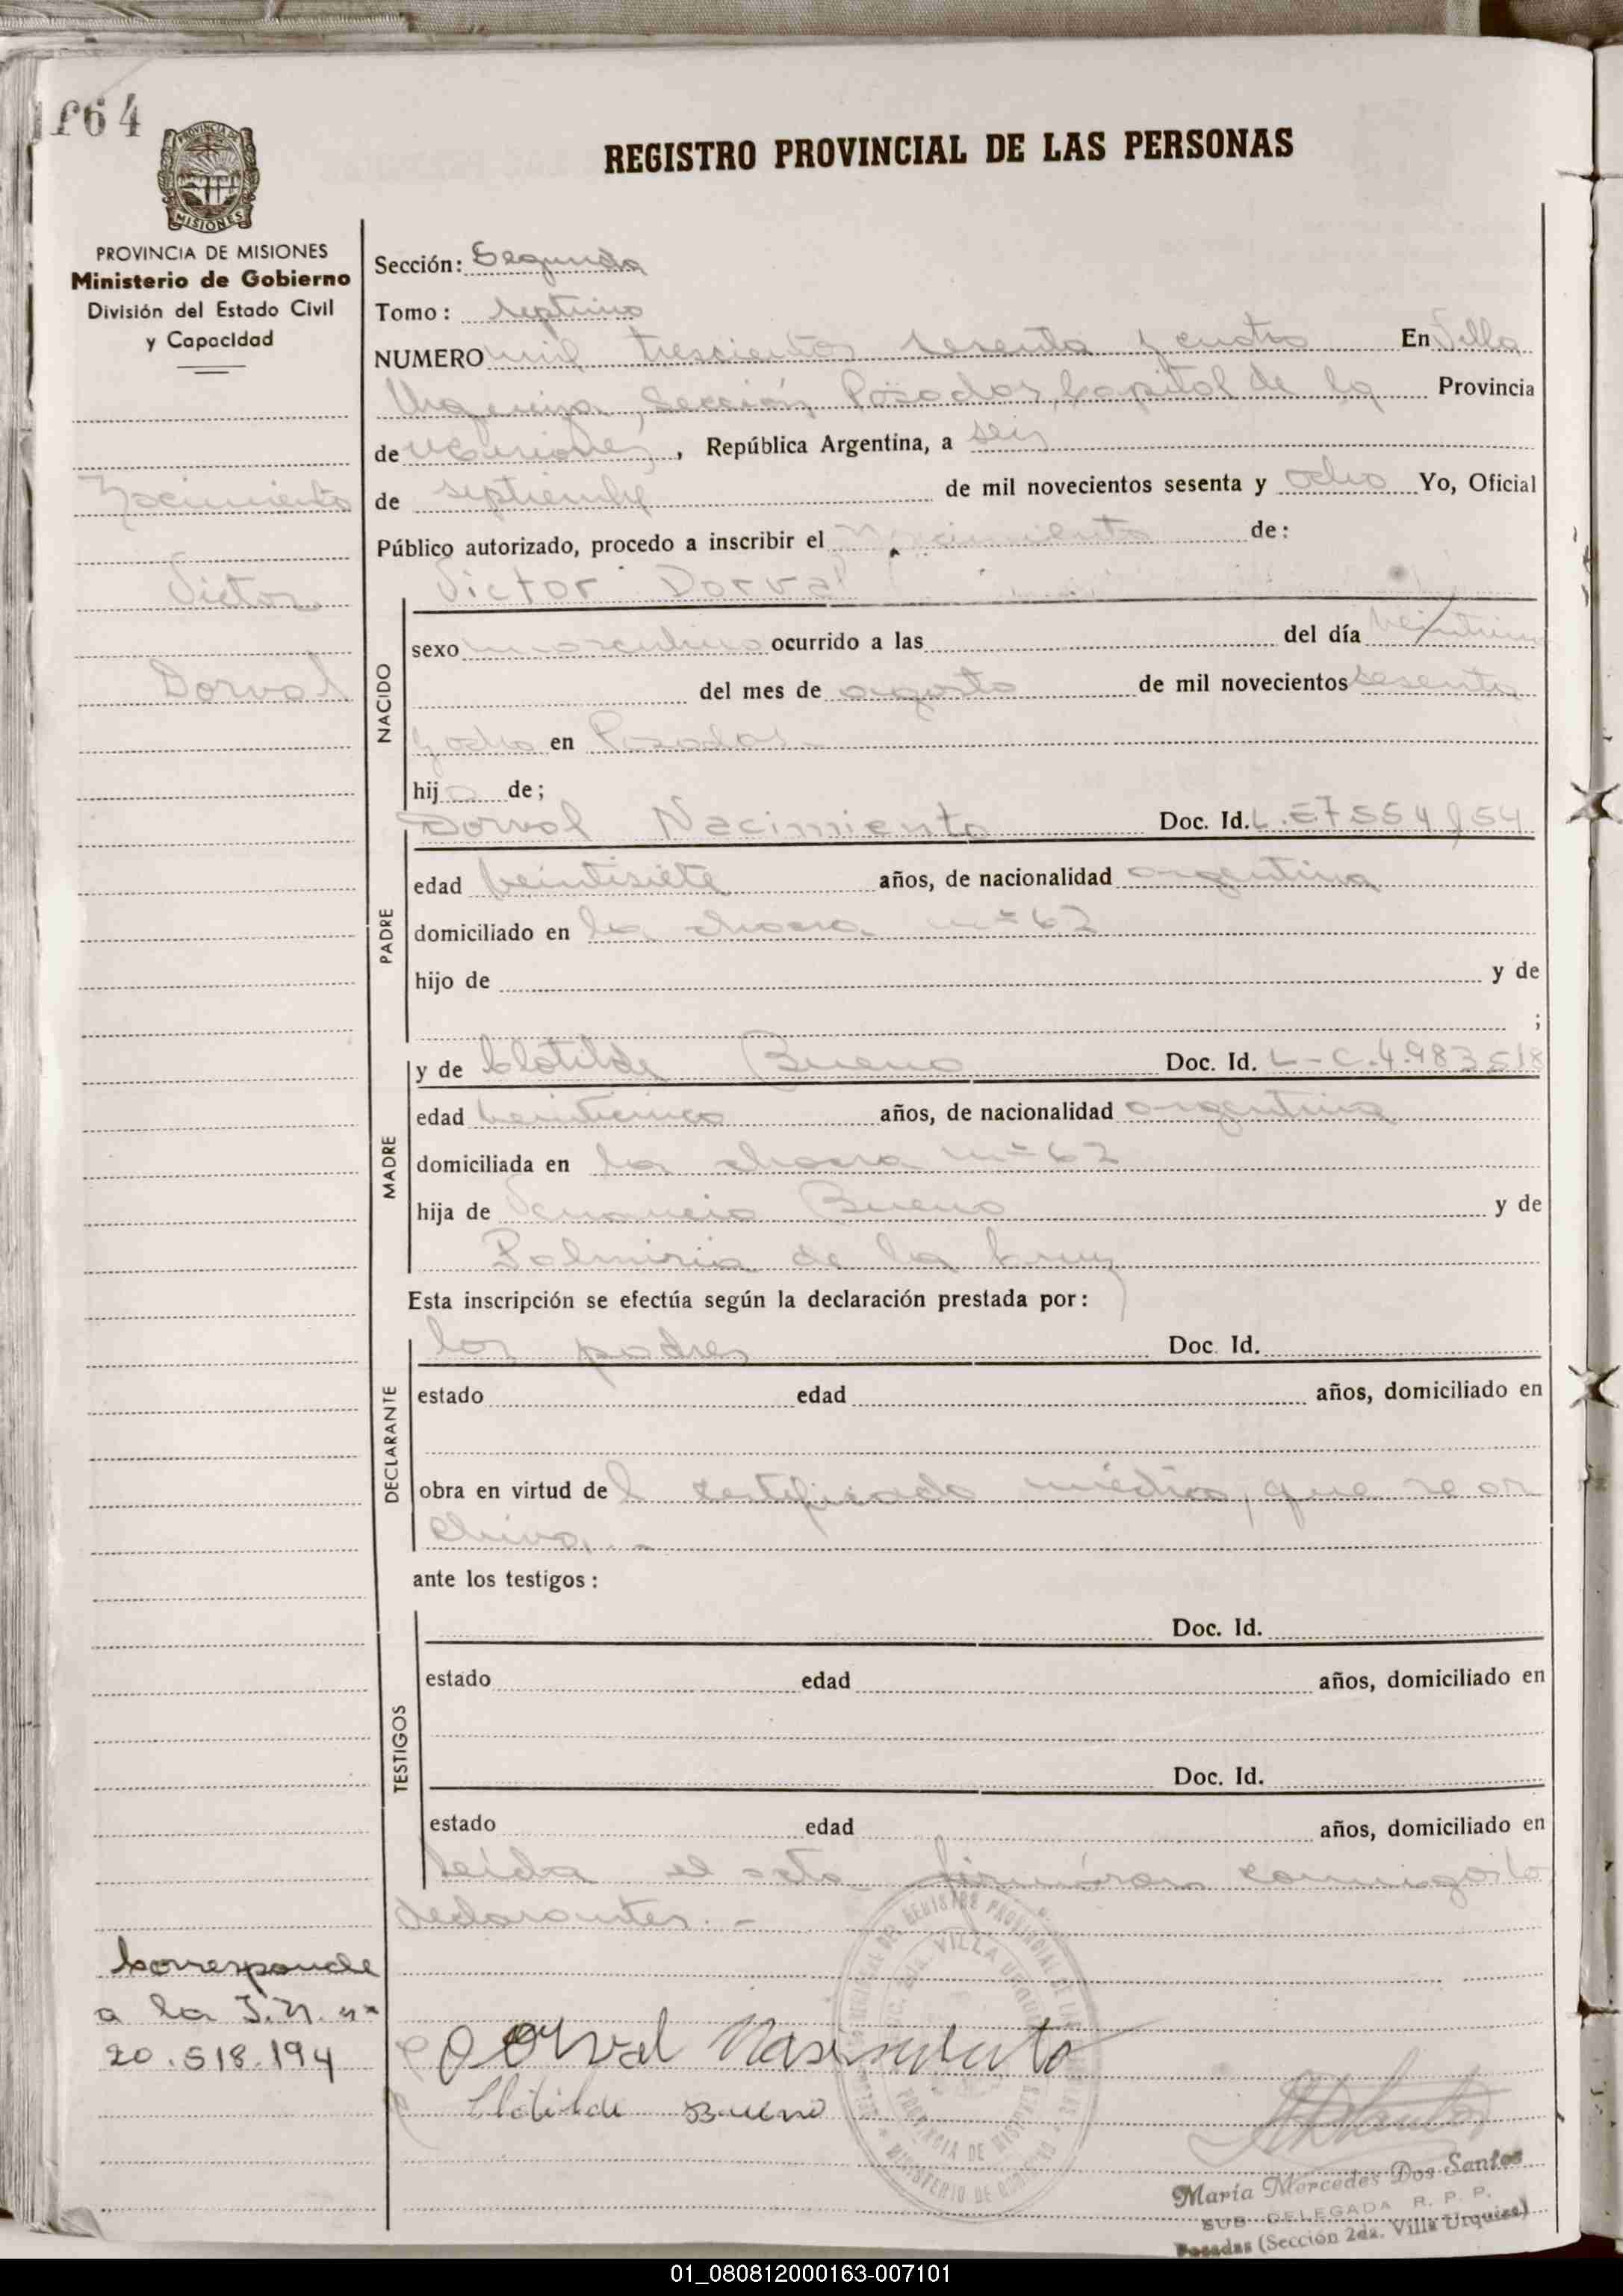 1364
PROVINCIA DE
MISIONES
REGISTRO PROVINCIAL DE LAS PERSONAS
PROVINCIA DE MISIONES
Ministerio de Gobierno
División del Estado Civil
y Capacidad
Nacimiento
Victor
Dorval
Corresponde
a la I.N. nº
20.518.194
Sección: Segunda
Tomo: septimo
NUMERO mil trescientos sesenta y cuatro En Villa
Urquiza, Sección Posadas, Capital de la Provincia
de Misiones, República Argentina, a seis
de septiembre de mil novecientos sesenta y ocho Yo, Oficial
Público autorizado, procedo a inscribir el Nacimiento de:
Victor Dorval
NACIDO
sexo masculino ocurrido a las del día veintiuno
del mes de agosto de mil novecientos sesenta
y ocho en Posadas.-
hijo de;
PADRE
Dorval Nacimiento Doc. Id. L.E 7.554.954
edad veintisiete años, de nacionalidad argentina
domiciliado en la chacra nº 62
hijo de y de
;
MADRE
y de Clotilde Bueno Doc. Id. L-C.4.983.518
edad veinticinco años, de nacionalidad argentina
domiciliada en la chacra nº 62
hija de Venancio Bueno y de
Palmiria de la Cruz
Esta inscripción se efectúa según la declaración prestada por:
DECLARANTE
los padres Doc. Id.
estado edad años, domiciliado en
obra en virtud del certificado médico, que se ar
chiva.-
ante los testigos:
TESTIGOS
Doc. Id.
estado edad años, domiciliado en
Doc. Id.
estado edad años, domiciliado en
Leída el acta firmáron conmigo lo
declarantes.-
Dorval Nasimiento
Clotilde Bueno
DEL REGISTRO PROVINCIAL DE LAS
VILLA URQUIZA
PROVINCIA DE MISIONES
MINISTERIO DE GOBIERNO
María Mercedes Dos Santos
SUB DELEGADA R. P. P.
Posadas (Sección 2da. Villa Urquiza)
01_080812000163-007101